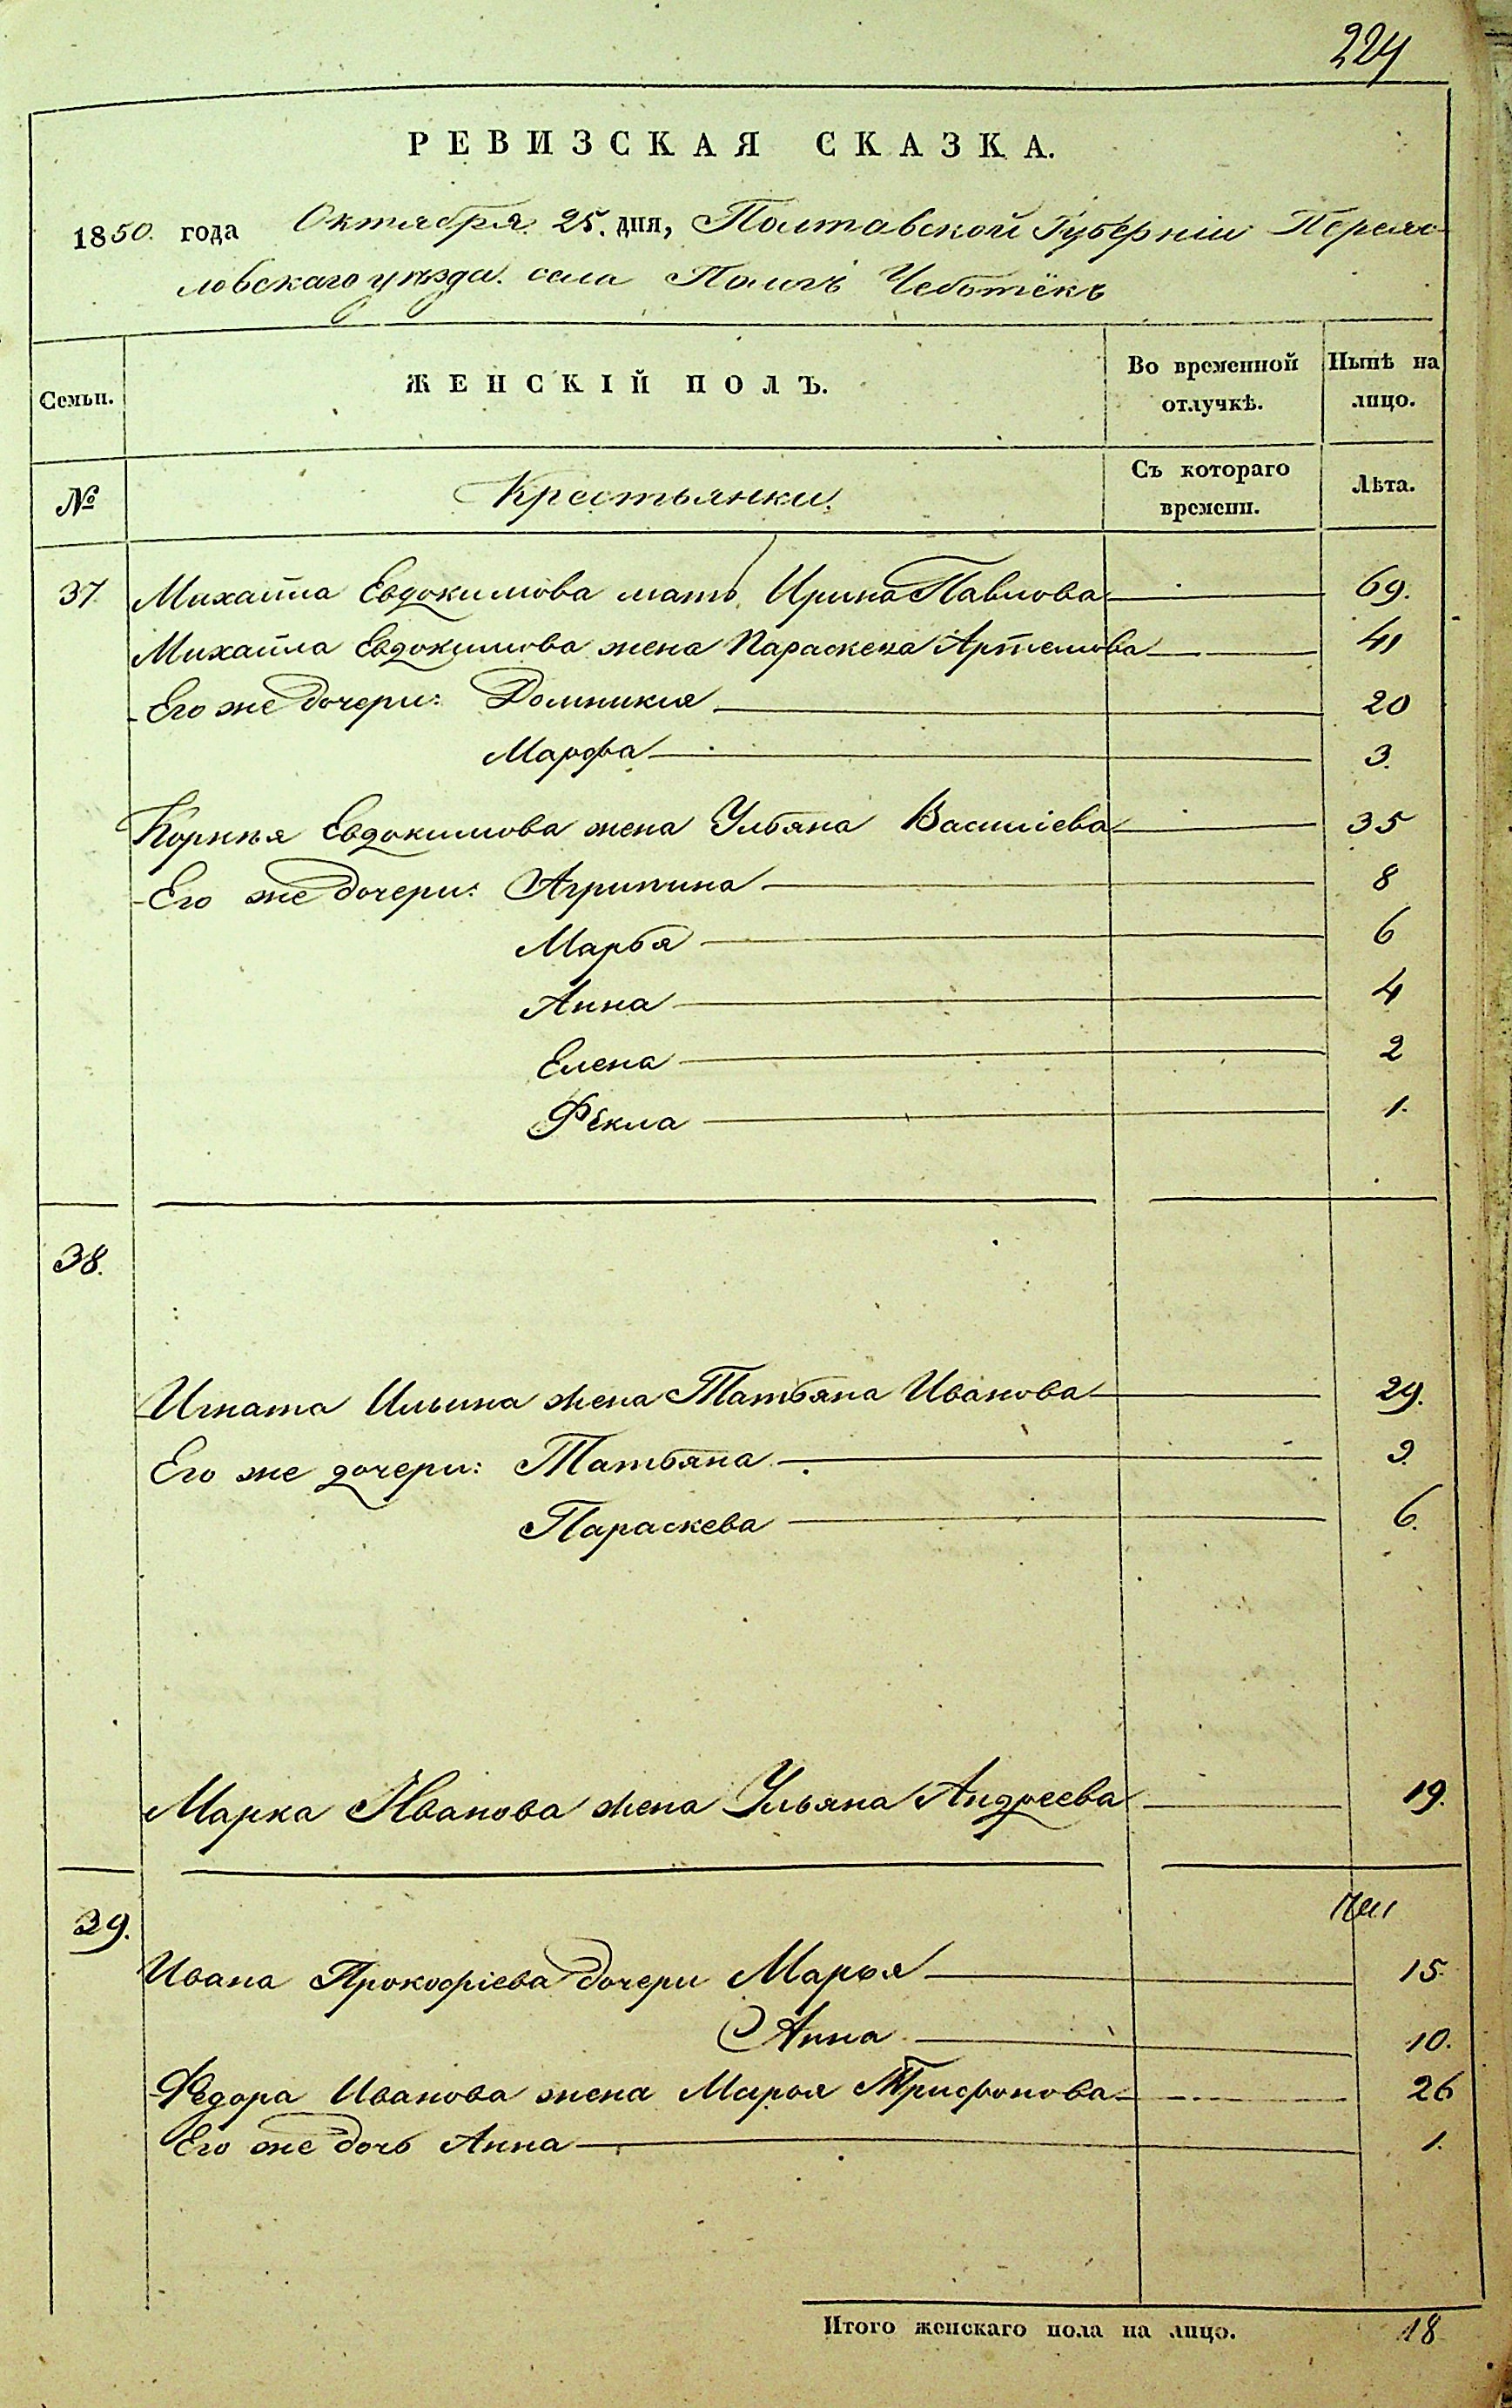 224
РЕВИЗСКАЯ СКАЗКА.
1850. года Октября 25. дня, Полтавской Губерніи Переяс-
ловскаго уѣзда. села
Семьи. ЖЕНСКІЙ ПОЛЪ. Во временной отлучкѣ. Нынѣ на лицо.
№ Крестьянки. Съ котораго времени. Лѣта.
37 Михайла Евдокимова мать Ирина Павлова 69.
Михайла Евдокимова жена Параскева Артемова 41
Его же дочери: Домникия 20
Марфа 3.
Корнѣя Евдокимова жена Ульяна Василіева 35
Его же дочери: Агрипина 8
Марья 6
Анна 4
Елена 2
Фекла 1.
38.
Игната Ильина жена Татьяна Иванова 29.
Его же дочери: Татьяна 9.
Параскева 6.
Марка Иванова жена Ульяна Андреева 19.
39.
Ивана Прокофіева дочери Марья 15.
Анна 10.
Федора Иванова жена Марья Трифонова 26
Его же дочь Анна 1.
Итого женскаго пола на лицо. 18